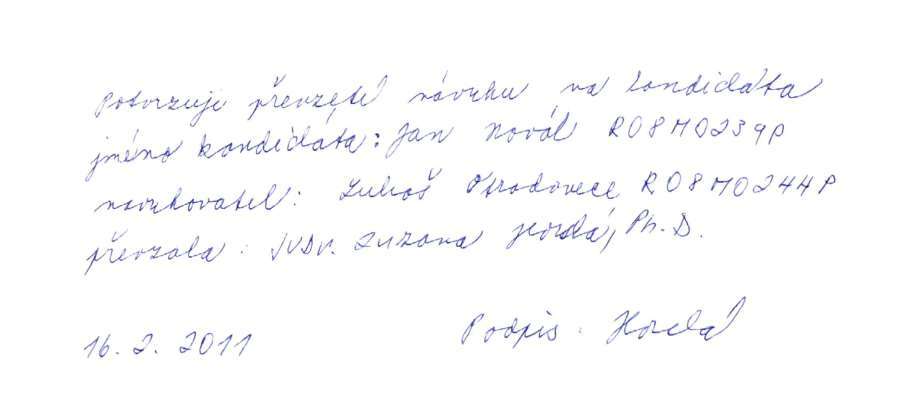 Potvrzuje převzetí návrhu na kandidáta
jméno kandidáta: Jan Novák R08M0239P
navrhovatel: Luboš Otradovec R08M0244P
převzala: JUDr. Zuzana Hordá, Ph.D.
16. 2. 2011 Podpis: Horda